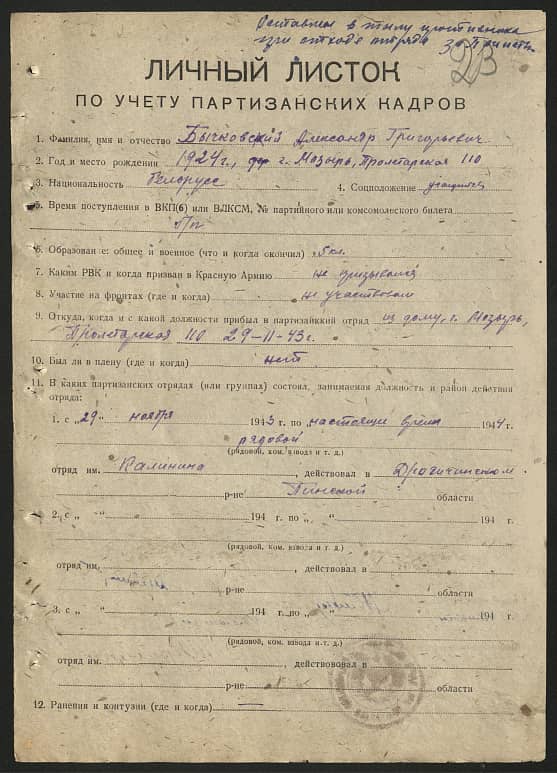 Оставлен в тылу противника
при отходе отряда за Припять
23
ЛИЧНЫЙ ЛИСТОК
ПО УЧЕТУ ПАРТИЗАНСКИХ КАДРОВ
1. Фамилия, имя и отчество Бычковский Александр Григорьевич
2. Год и место рождения 1924 г., г. Мозырь, Пролетарская 110
3. Национальность Белорусс 4. Соцположение учащийся
5. Время поступления в ВКП(б) или ВЛКСМ, № партийного или комсомолского билета
б/п
6. Образован е: общее и военное (что и когда окончил) 5 кл.
7. Каким РВК и когда призван в Красную Армию не призывался
8. Участие на фронтах (где и когда) не участвовал
9. Откуда, когда и с какой должности прибыл в партизанский отряд из дому, г. Мозырь,
Пролетарская 110 29-11-43 г.
10. Был ли в плену (где и когда) нет
11. В каких партизанских отрядах (или группах) состоял, занимаемая должность и район действия
отряда:
1. с „29" ноября 1943 г. по настоящее время 1944 г.
рядовой
(рядовой, ком. взвода и т. д.)
отряд им. Калинина, действовал в Дрогичинском
р-не Пинской области
2. с „ " 194 г. по „ " 194 г.
(рядовой, ком. взвода и т. д.)
отряд им. , действовал в
р-не области
3. с „ " 194 г. по „ " 194 г.
(рядовой, ком. взвода и т. д.)
отряд им. , действовал в
р-не области
12. Ранения и контузии (где и когда) —